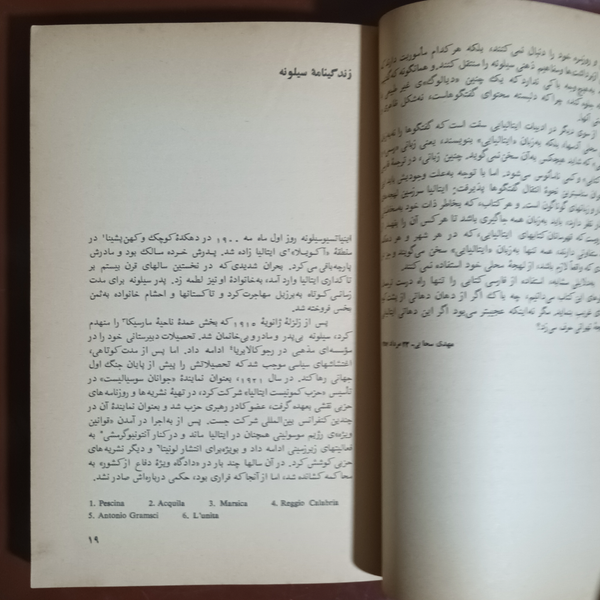 زندگینامهٔ سیلونه
اینیاتسیوسیلونه روز اول ماه مه ۱۹۰۰ در دهکدهٔ کوچک و کهن پشینا¹ در
منطقهٔ «آکویلا»²ی ایتالیا زاده شد. پدرش خرده مالک بود و مادرش
پارچه‌بافی می‌کرد. بحران شدیدی که در نخستین سالهای قرن بیستم بر
تاکداری ایتالیا وارد آمد، به‌خانوادهٔ او نیز لطمه زد. پدر سیلونه برای مدت
زمانی کوتاه به‌برزیل مهاجرت کرد و تاکستانها و احشام خانواده به‌ثمن
بخس فروخته شد.
پس از زلزلهٔ ژانویهٔ ۱۹۱۵ که بخش عمدهٔ ناحیهٔ مارسیکا³ را منهدم
کرد، سیلونه بی‌پدر و مادر و بی‌خانمان شد. تحصیلات دبیرستانی خود را در
مؤسسه‌ای مذهبی در رجوکالابریا⁴ ادامه داد. اما پس از مدت کوتاهی،
اغتشاشهای سیاسی موجب شد که تحصیلاتش را پیش از پایان جنگ اول
جهانی رها کند. در سال ۱۹۲۱ بعنوان نمایندهٔ «جوانان سوسیالیست» در
تأسیس «حزب کمونیست ایتالیا» شرکت کرد، در تهیهٔ نشریه‌ها و روزنامه‌های
حزبی نقشی بعهده گرفت، عضو کادر رهبری حزب شد و بعنوان نمایندهٔ آن در
چندین کنفرانس بین‌المللی شرکت جست. پس از به‌اجرا در آمدن «قوانین
ویژه»ی رژیم موسولینی همچنان در ایتالیا ماند و در کنار آنتونیوگرمشی⁵ به
فعالیتهای زیرزمینی ادامه داد و بویژه برای انتشار لونیتا⁶ و دیگر نشریه‌های
حزبی کوشش کرد. در آن سالها چند بار در «دادگاه ویژهٔ دفاع از کشور» به
محاکمه کشانده شد، اما از آنجا که فراری بود، حکمی درباره‌اش صادر نشد.
1. Pescina 2. Acquila 3. Marsica 4. Reggio Calabria
5. Antonio Gramsci 6. L'unita
۱۹
خود را دنبال نمی‌کنند، بلکه هرکدام مأموریت دارند
مفاهیم ذهنی سیلونه را منتقل کنند. و همانگونه که
باکی ندارد که یک چنین «دیالوگ»ی غیر طبیعی
چرا که دانسته محتوای گفتگوهاست، نه‌شکل ظاهری
از سوی دیگر در ادبیات ایتالیایی سنت است که گفتگوها را
به‌زبان «ایتالیایی» بنویسند، یعنی زبانی
که شاید هیچکس به‌آن سخن نمی‌گوید. چنین زبانی، در ترجمهٔ
و کمی نامأنوس می‌شود. اما با توجه به‌علت وجودیش باید
انتقال گفتگوها پذیرفت: ایتالیا سرزمین لهجه‌های
گوناگون است. و هر کتاب، که بخاطر ذات خود به‌مخاطبان
باید به‌زبان همه جاگیری باشد تا هر کس آن را بفهمد
که قهرمانان کتابهای ایتالیایی، که در هر شهر و هر
همه تنها به‌زبان «ایتالیایی» سخن می‌گویند و
واقعاً لازم باشد، از لهجهٔ محلی خود استفاده نمی‌کنند.
استفاده از فارسی کتابی را تنها راه درست
می‌دانیم، چه باکه اگر از دهان دهاتی از پشت
عجیبتر می‌بود اگر این دهاتی ایتالیایی
حرف می‌زد؟
مهدی سحابی، ۲۳ مرداد